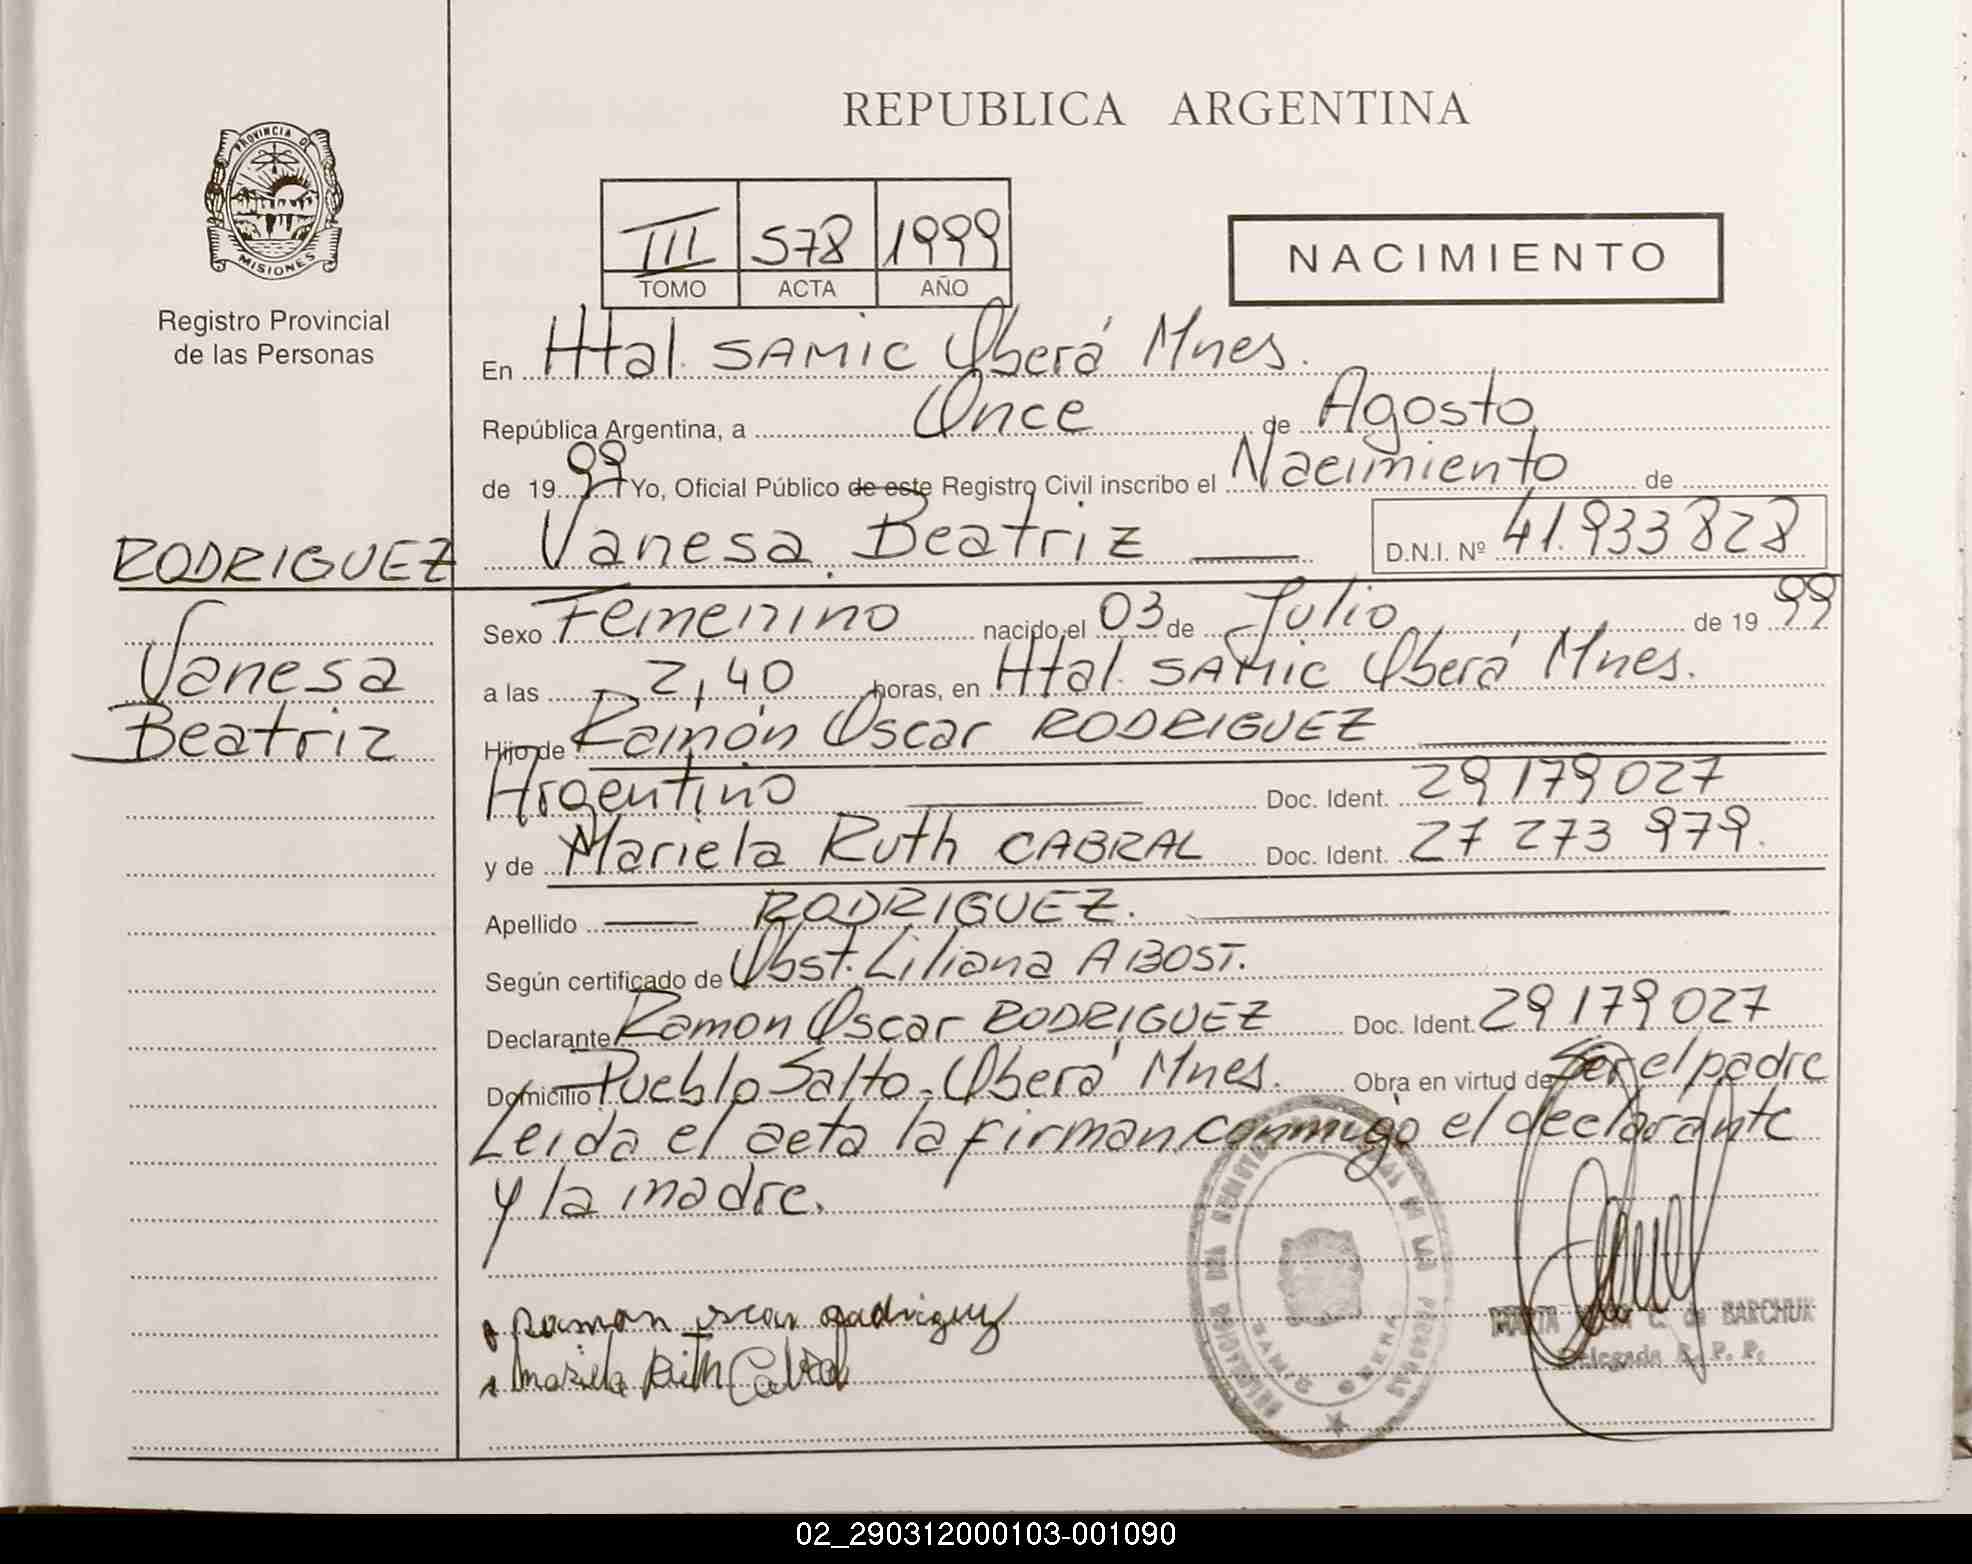 REPUBLICA ARGENTINA
PROVINCIA DE
MISIONES
Registro Provincial
de las Personas
III 578 1999
TOMO ACTA AÑO
NACIMIENTO
En Htal. SAMIC Oberá Mnes.
República Argentina, a Once de Agosto
de 1999 Yo, Oficial Público de este Registro Civil inscribo el Nacimiento de
RODRIGUEZ Vanesa Beatriz D.N.I. Nº 41.933828
Vanesa
Beatriz
Sexo Femenino nacido el 03 de Julio de 1999
a las 2,40 horas, en Htal. SAMIC Oberá Mnes.
Hijo de Ramón Oscar RODRIGUEZ
Argentino Doc. Ident. 29179027
y de Mariela Ruth CABRAL Doc. Ident. 27 273 979.
Apellido RODRIGUEZ.
Según certificado de Obst. Liliana ABOST.
Declarante Ramon Oscar RODRIGUEZ Doc. Ident. 29179027
Domicilio Pueblo Salto - Oberá Mnes. Obra en virtud de Ser el padre
Leida el acta la firman conmigo el declarante
y la madre.
Ramon oscar Rodriguez
mariela Ruth Cabral
C. de BARCHUK
Delegada R. P. P.
SAMIC OBERA
02_290312000103-001090